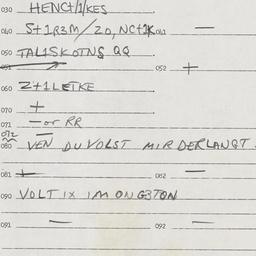 030 HENCT/1/KES
040 S+1R3M/20, NC+1K 041 —
050 TALISKOTNS QQ
051 052 +
060 Z+1LETKE
070 +
071 — or RR
072 —
080 VEN DU VOLST MIR DERLANGT.
081 + 082 —
090 VOLT IX IM ONG3TON
091 — 092 —